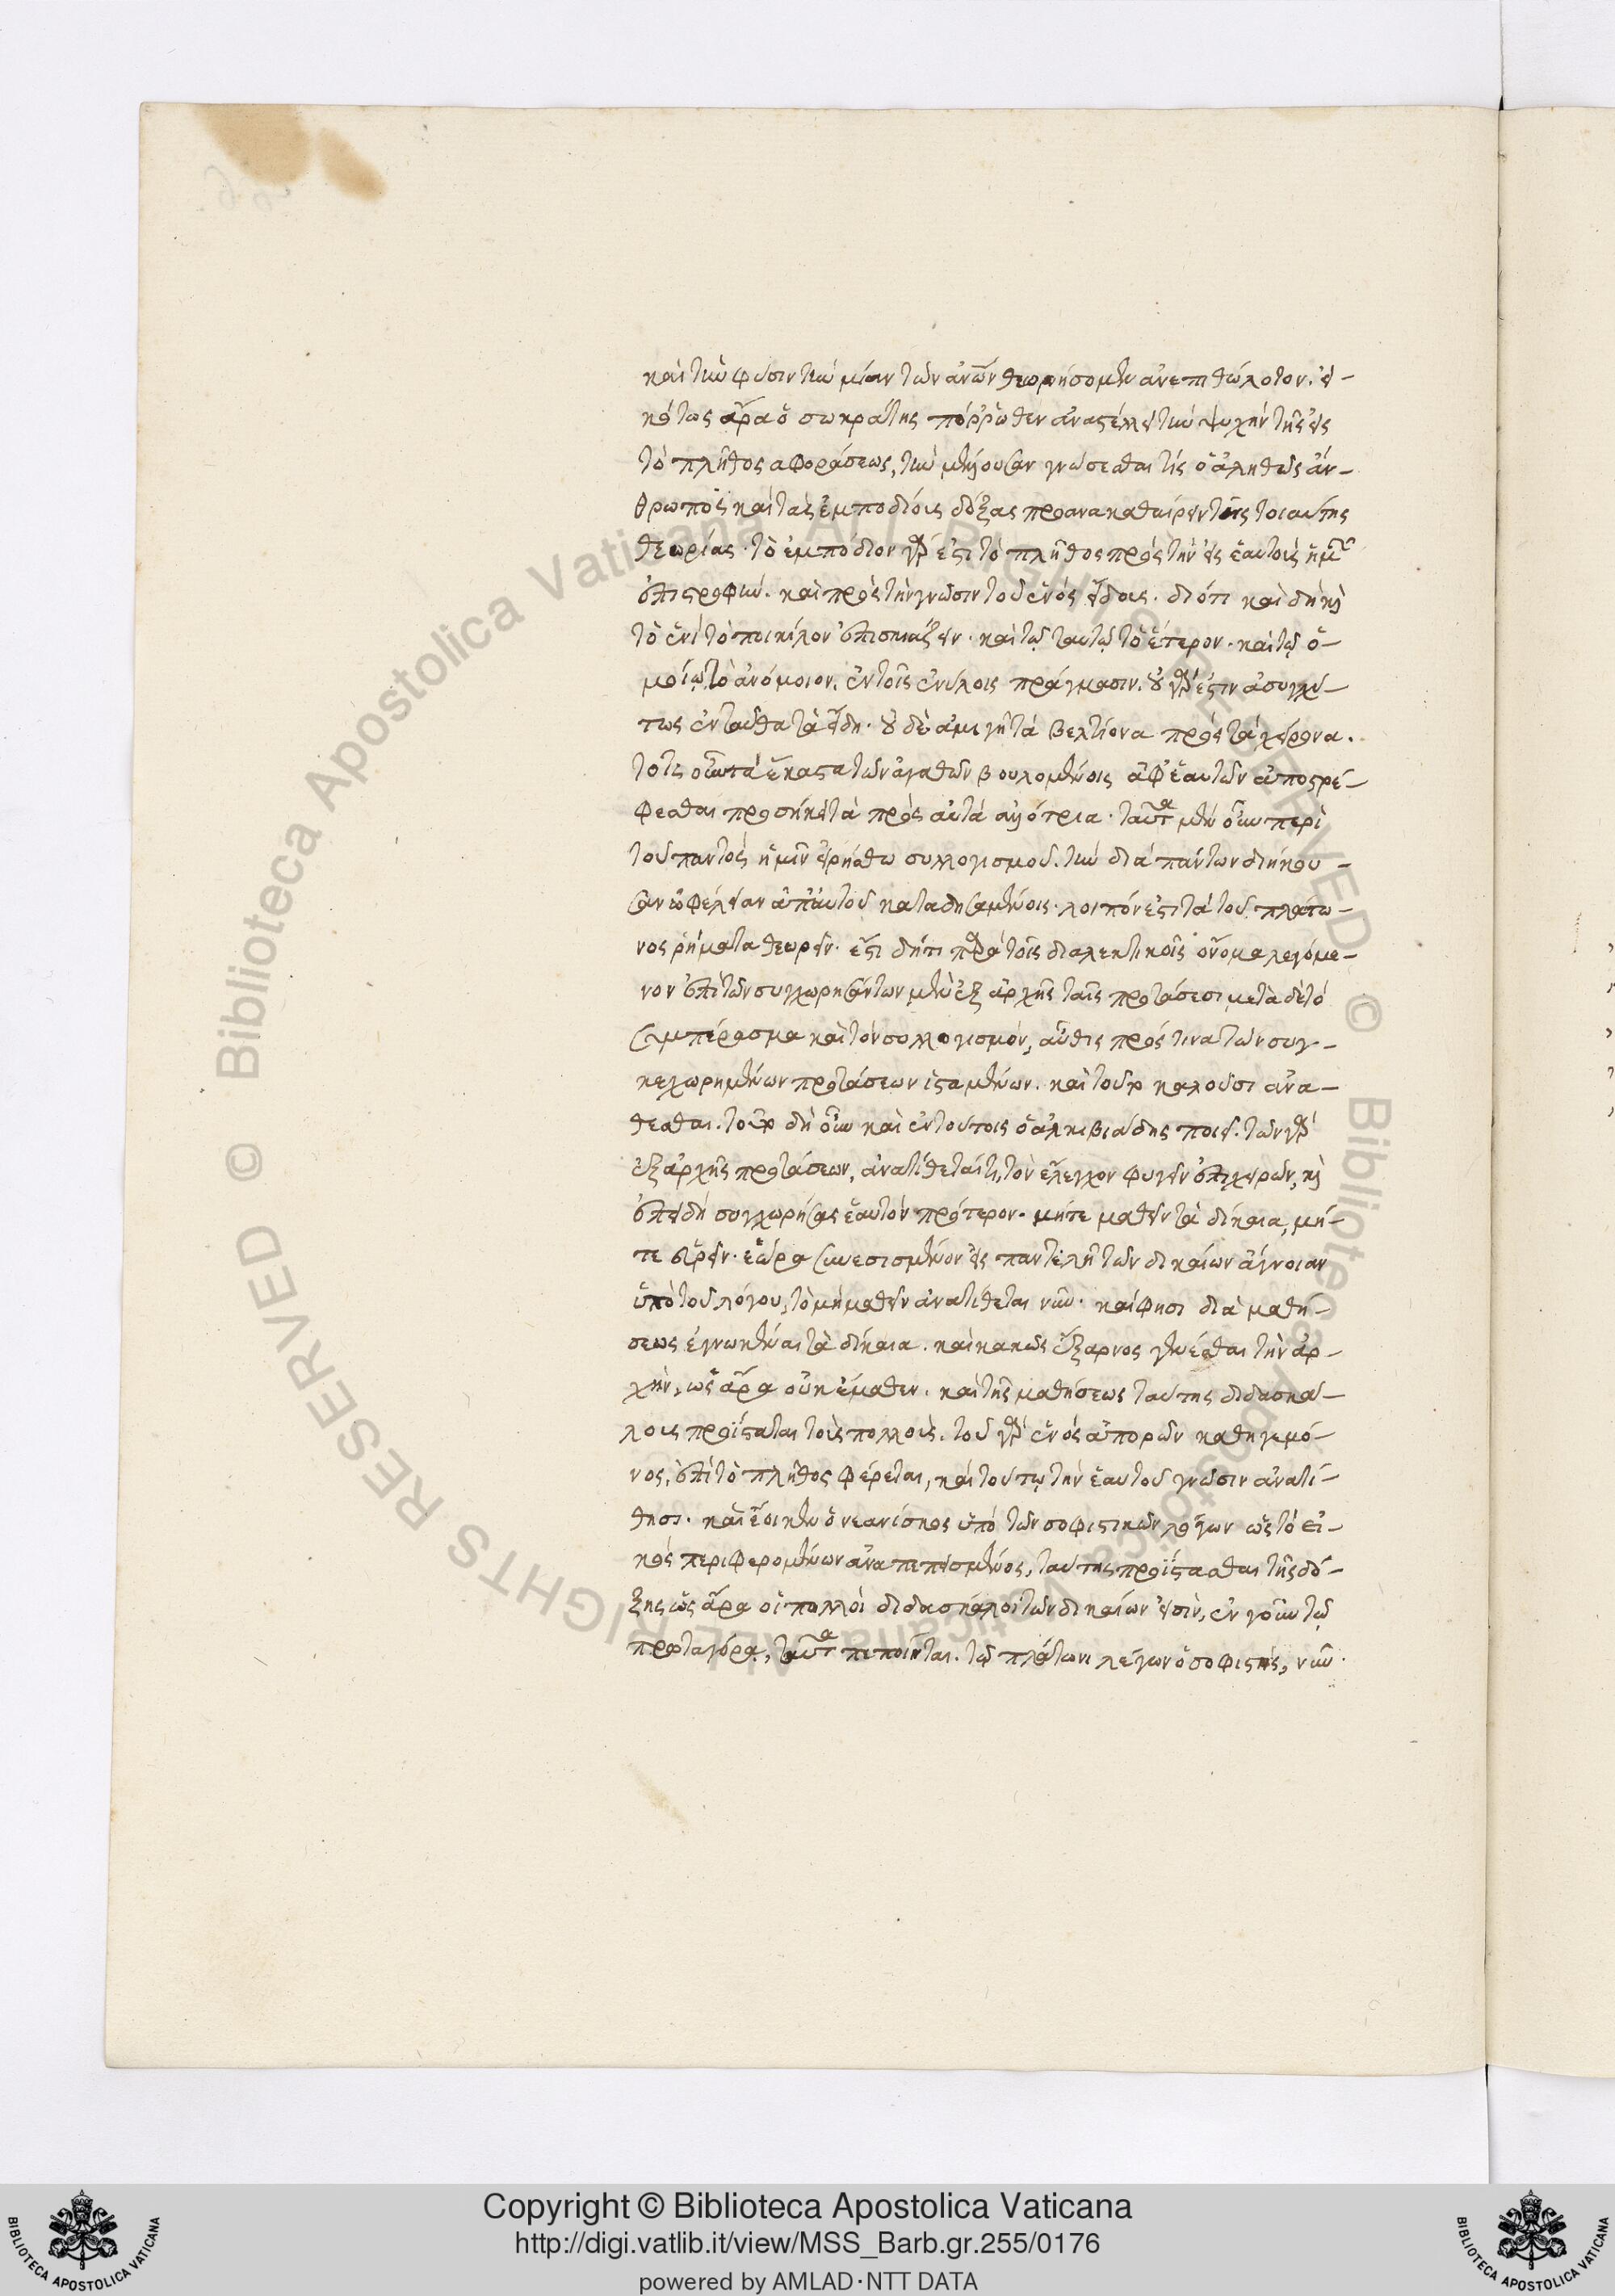 καὶ τὴν φύσιν τὴν μίαν τῶν ἀνῶν θεωρήσομεν ἀνεπιθόλωτον. εἰ-
κότως ἄρα ὁ σωκράτης πόρρωθεν ἀναστέλλει τὴν ψυχὴν τῆς εἰς
τὸ πλῆθος ἀφοράσεως, τὴν μέλλουσαν γνώσεσθαι τίς ὁ ἀληθῶς ἄν-
θρωπος καὶ τὰς ἐμποδίους δόξας προανακαθαίρειν τῆς τοιαύτης
θεωρίας. τὸ ἐμπόδιον γάρ ἐστι τὸ πλῆθος πρὸς τὴν εἰς ἑαυτοὺς ἡμῶν
ἐπιστροφήν. καὶ πρὸς τὴν γνῶσιν τοῦ ἑνὸς εἴδους. διότι καὶ δὴ καὶ
τὸ ἑνὶ τὸ ποικίλον ἐπισκιάζειν. καὶ τῷ ταυτῷ τὸ ἕτερον. καὶ τῷ ὁ-
μοίῳ τὸ ἀνόμοιον. ἐν τοῖς ἐνύλοις πράγμασιν. οὐ γάρ ἐστιν ἀσυγχύ-
τως ἐνταῦθα τὰ εἴδη. οὐδὲ ἀμιγῆ τὰ βελτίονα πρὸς τὰ χείρονα.
τοῖς οὖν τὰ ἕκαστα τῶν ἀγαθῶν βουλομένοις ἀφ' ἑαυτῶν ἀποστρέ-
φεσθαι προσήκει τὰ πρὸς αὐτὰ ἀλλότρια. ταῦτα μὲν οὖν περὶ
τοῦ παντὸς ἡμῖν εἰρήσθω συλλογισμοῦ. τὴν διὰ πάντων διήκου-
σαν ὠφέλειαν ἀπ' αὐτοῦ καταδησαμένοις. λοιπόν ἐστι τὰ τοῦ πλάτω-
νος ῥήματα θεωρεῖν. ἔστι δή τι παρὰ τοῖς διαλεκτικοῖς ὄνομα λεγόμε-
νον ἐπὶ τῶν συγχωρησάντων μὲν ἐξ ἀρχῆς ταῖς προτάσεσι μετὰ δὲ τὸ
συμπέρασμα καὶ τὸν συλλογισμόν, αὖθις πρός τινα τῶν συγ-
κεχωρημένων προτάσεων ἱσταμένων. καὶ τοῦτο καλοῦσι ἀνα-
θέσθαι. τοῦτο δὴ οὖν καὶ ἐν τούτοις ὁ ἀλκιβιάδης ποιεῖ. τῶν γὰρ
ἐξ ἀρχῆς προτάσεων, ἀνατίθεταί τι, τὸν ἔλεγχον φυγεῖν ἐπιχειρῶν, καὶ
ἐπειδὴ συγχωρήσας ἑαυτὸν πρότερον. μήτε μαθεῖν τὰ δίκαια, μή-
τε εὑρεῖν. ἑώρα συνεσισμένον εἰς παντελῆ τῶν δικαίων ἄγνοιαν
ὑπὸ τοῦ λόγου, τὸ μὴ μαθεῖν ἀνατίθεται νῦν. καί φησι διὰ μαθή-
σεως ἐγνωκέναι τὰ δίκαια. καὶ κακῶς ἔξαρνος γενέσθαι τὴν ἀρ-
χὴν, ὡς ἄρα οὐκ ἔμαθεν. καὶ τῆς μαθήσεως ταύτης διδασκά-
λους προΐσταται τοὺς πολλοὺς. τοῦ γὰρ ἑνὸς ἀπορῶν καθηγεμό-
νος, ἐπὶ τὸ πλῆθος φέρεται, καὶ τούτῳ τὴν ἑαυτοῦ γνῶσιν ἀνατί-
θησι. καὶ ἔοικεν ὁ νεανίσκος ὑπὸ τῶν σοφιστικῶν λόγων ὡς τὸ εἰ-
κὸς περιφερομένων ἀναπεπεισμένος, ταύτης προΐστασθαι τῆς δό-
ξης ὡς ἄρα οἱ πολλοὶ διδάσκαλοι τῶν δικαίων εἰσὶν, ἐν γοῦν τῷ
πρωταγόρᾳ, ταῦτα πεποίηται. τῷ πλάτωνι λέγων ὁ σοφιστής, νῦν
Copyright © Biblioteca Apostolica Vaticana
http://digi.vatlib.it/view/MSS_Barb.gr.255/0176
powered by AMLAD·NTT DATA